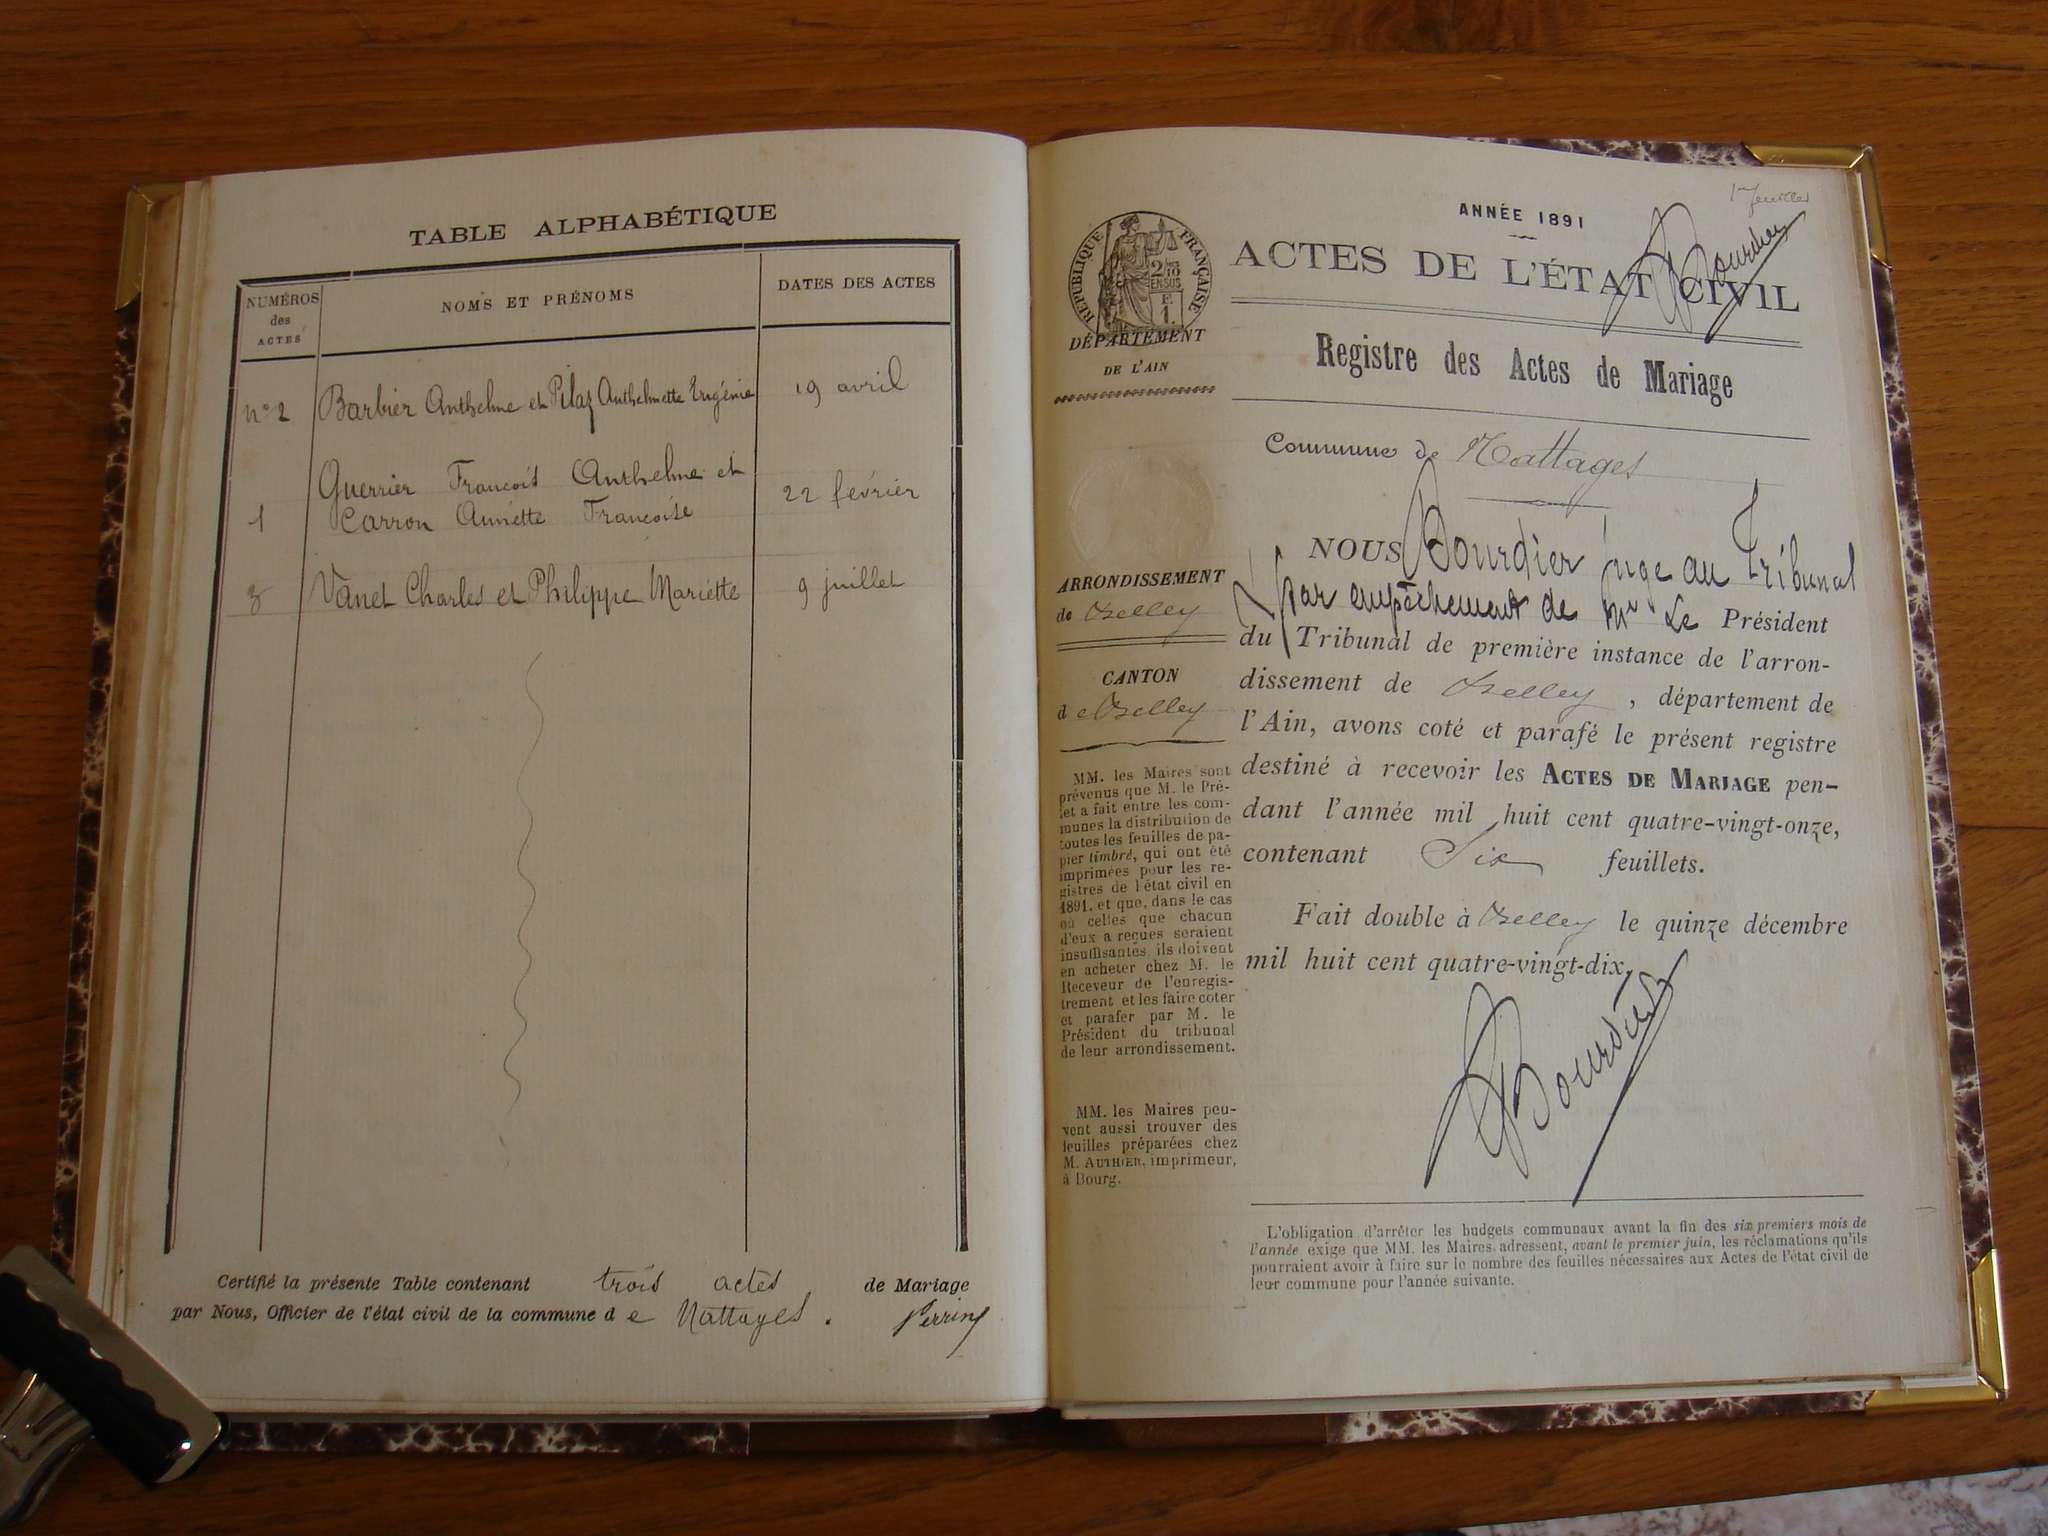 TABLE ALPHABÉTIQUE
NUMÉROS
des
ACTES
NOMS ET PRÉNOMS
DATES DES ACTES
n° 2 Barbier Anthelme et Pilaz Anthelmette Eugénie 19 avril
Guerrier François Anthelme et
1 Carron Annette Françoise 22 février
3 Vanet Charles et Philippe Mariette 9 juillet
Certifié la présente Table contenant trois actes de Mariage
par Nous, Officier de l'état civil de la commune de Nattages. Perrin
1er feuillet
ANNÉE 1891
Bourdier
ACTES DE L'ÉTAT CIVIL
RÉPUBLIQUE FRANÇAISE
DÉPARTEMENT
DE L'AIN
Registre des Actes de Mariage
Commune de Nattages
ARRONDISSEMENT
de Belley
CANTON
de Belley
MM. les Maires sont
prévenus que M. le Pré-
fet a fait entre les com-
munes la distribution de
toutes les feuilles de pa-
pier timbré, qui ont été
imprimées pour les re-
gistres de l'état civil en
1891, et que, dans le cas
où celles que chacun
d'eux a reçues seraient
insuffisantes, ils doivent
en acheter chez M. le
Receveur de l'enregis-
trement et les faire coter
et parafer par M. le
Président du tribunal
de leur arrondissement.
MM. les Maires peu-
vent aussi trouver des
feuilles préparées chez
M. AUTHIER, imprimeur,
à Bourg.
NOUS Bourdier juge au Tribunal
par empêchement de Mr Le Président
du Tribunal de première instance de l'arron-
dissement de Belley, département de
l'Ain, avons coté et parafé le présent registre
destiné à recevoir les ACTES DE MARIAGE pen-
dant l'année mil huit cent quatre-vingt-onze,
contenant Six feuillets.
Fait double à Belley le quinze décembre
mil huit cent quatre-vingt-dix.
Bourdier
L'obligation d'arrêter les budgets communaux avant la fin des six premiers mois de
l'année exige que MM. les Maires adressent, avant le premier juin, les réclamations qu'ils
pourraient avoir à faire sur le nombre des feuilles nécessaires aux Actes de l'état civil de
leur commune pour l'année suivante.